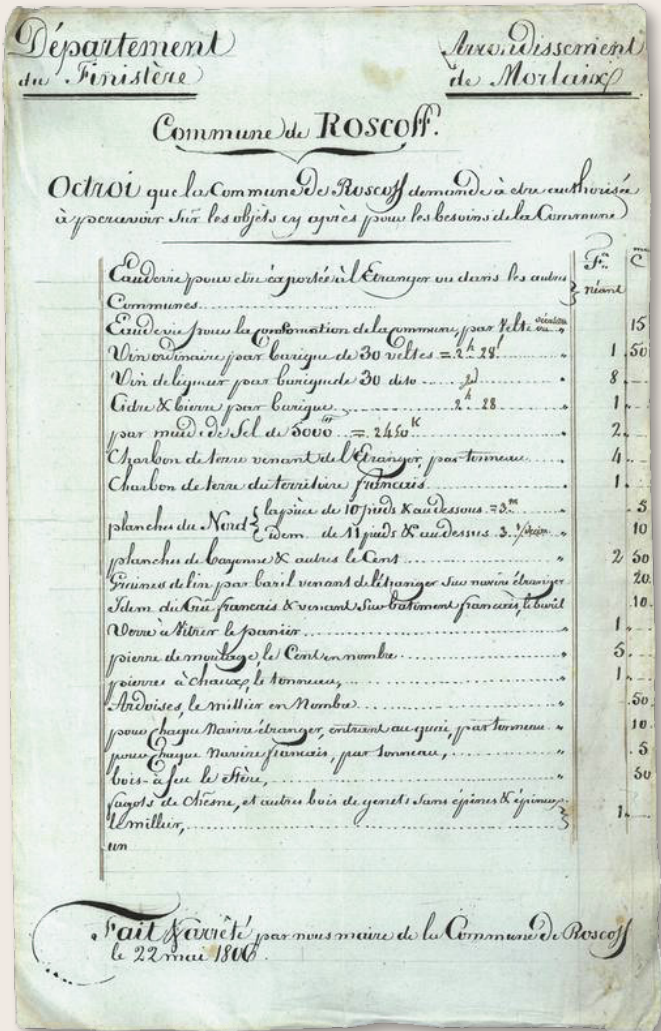 Département
du Finistère
Arrondissement
de Morlaix
Commune de Roscoff.
Octroi que la Commune De Roscoff demande à etre authorisée
à percevoir Sur les objets cy après pour les besoins de la Commune
Fr. C
Eauderie pour etre exportée à l'Etranger ou dans les autres
Communes.......... néant
Eauderie pour la Consomation de la commune, par Velte ou " 15
Vin ordinaire par barique de 30 veltes = 2h 28l " 1 50
Vin de liqueur par barique de 30 dito " 8
Cidre & bierre par barique 2h 28 " 1
par muid de Sel de 5000 = 2450 K " 2
Charbon de terre venant de l'Etranger, par tonneau " 4
Charbon de terre du territoire français " 1
planches du Nord { la pièce de 10 pieds & au dessous = 3m " 5
idem de 11 pieds & au dessus 3 " 10
planches de bayonne & autres le Cent " 2 50
Graines de lin par baril venant de l'étranger Sur navire étranger 20
Idem du Crû français & venant Sur batiment français, le baril 10
Verre à Vitrer le panier " 1
pierre de moulage, le Cent en nombre " 5
pierres à chaux, le tonneau, " 1
Ardoises, le millier en Nombre " 50
pour Chaque Navire étranger, entrant au quai, par tonneau " 10
pour Chaque Navire français, par tonneau, " 5
bois-à feu le Stère, " 50
fagots de Chesne, et autres bois de genets Sans épines & épineux
le millier, 1
un
Fait & arrêté par nous maire de la Commune De Roscoff
le 22 mai 1806.